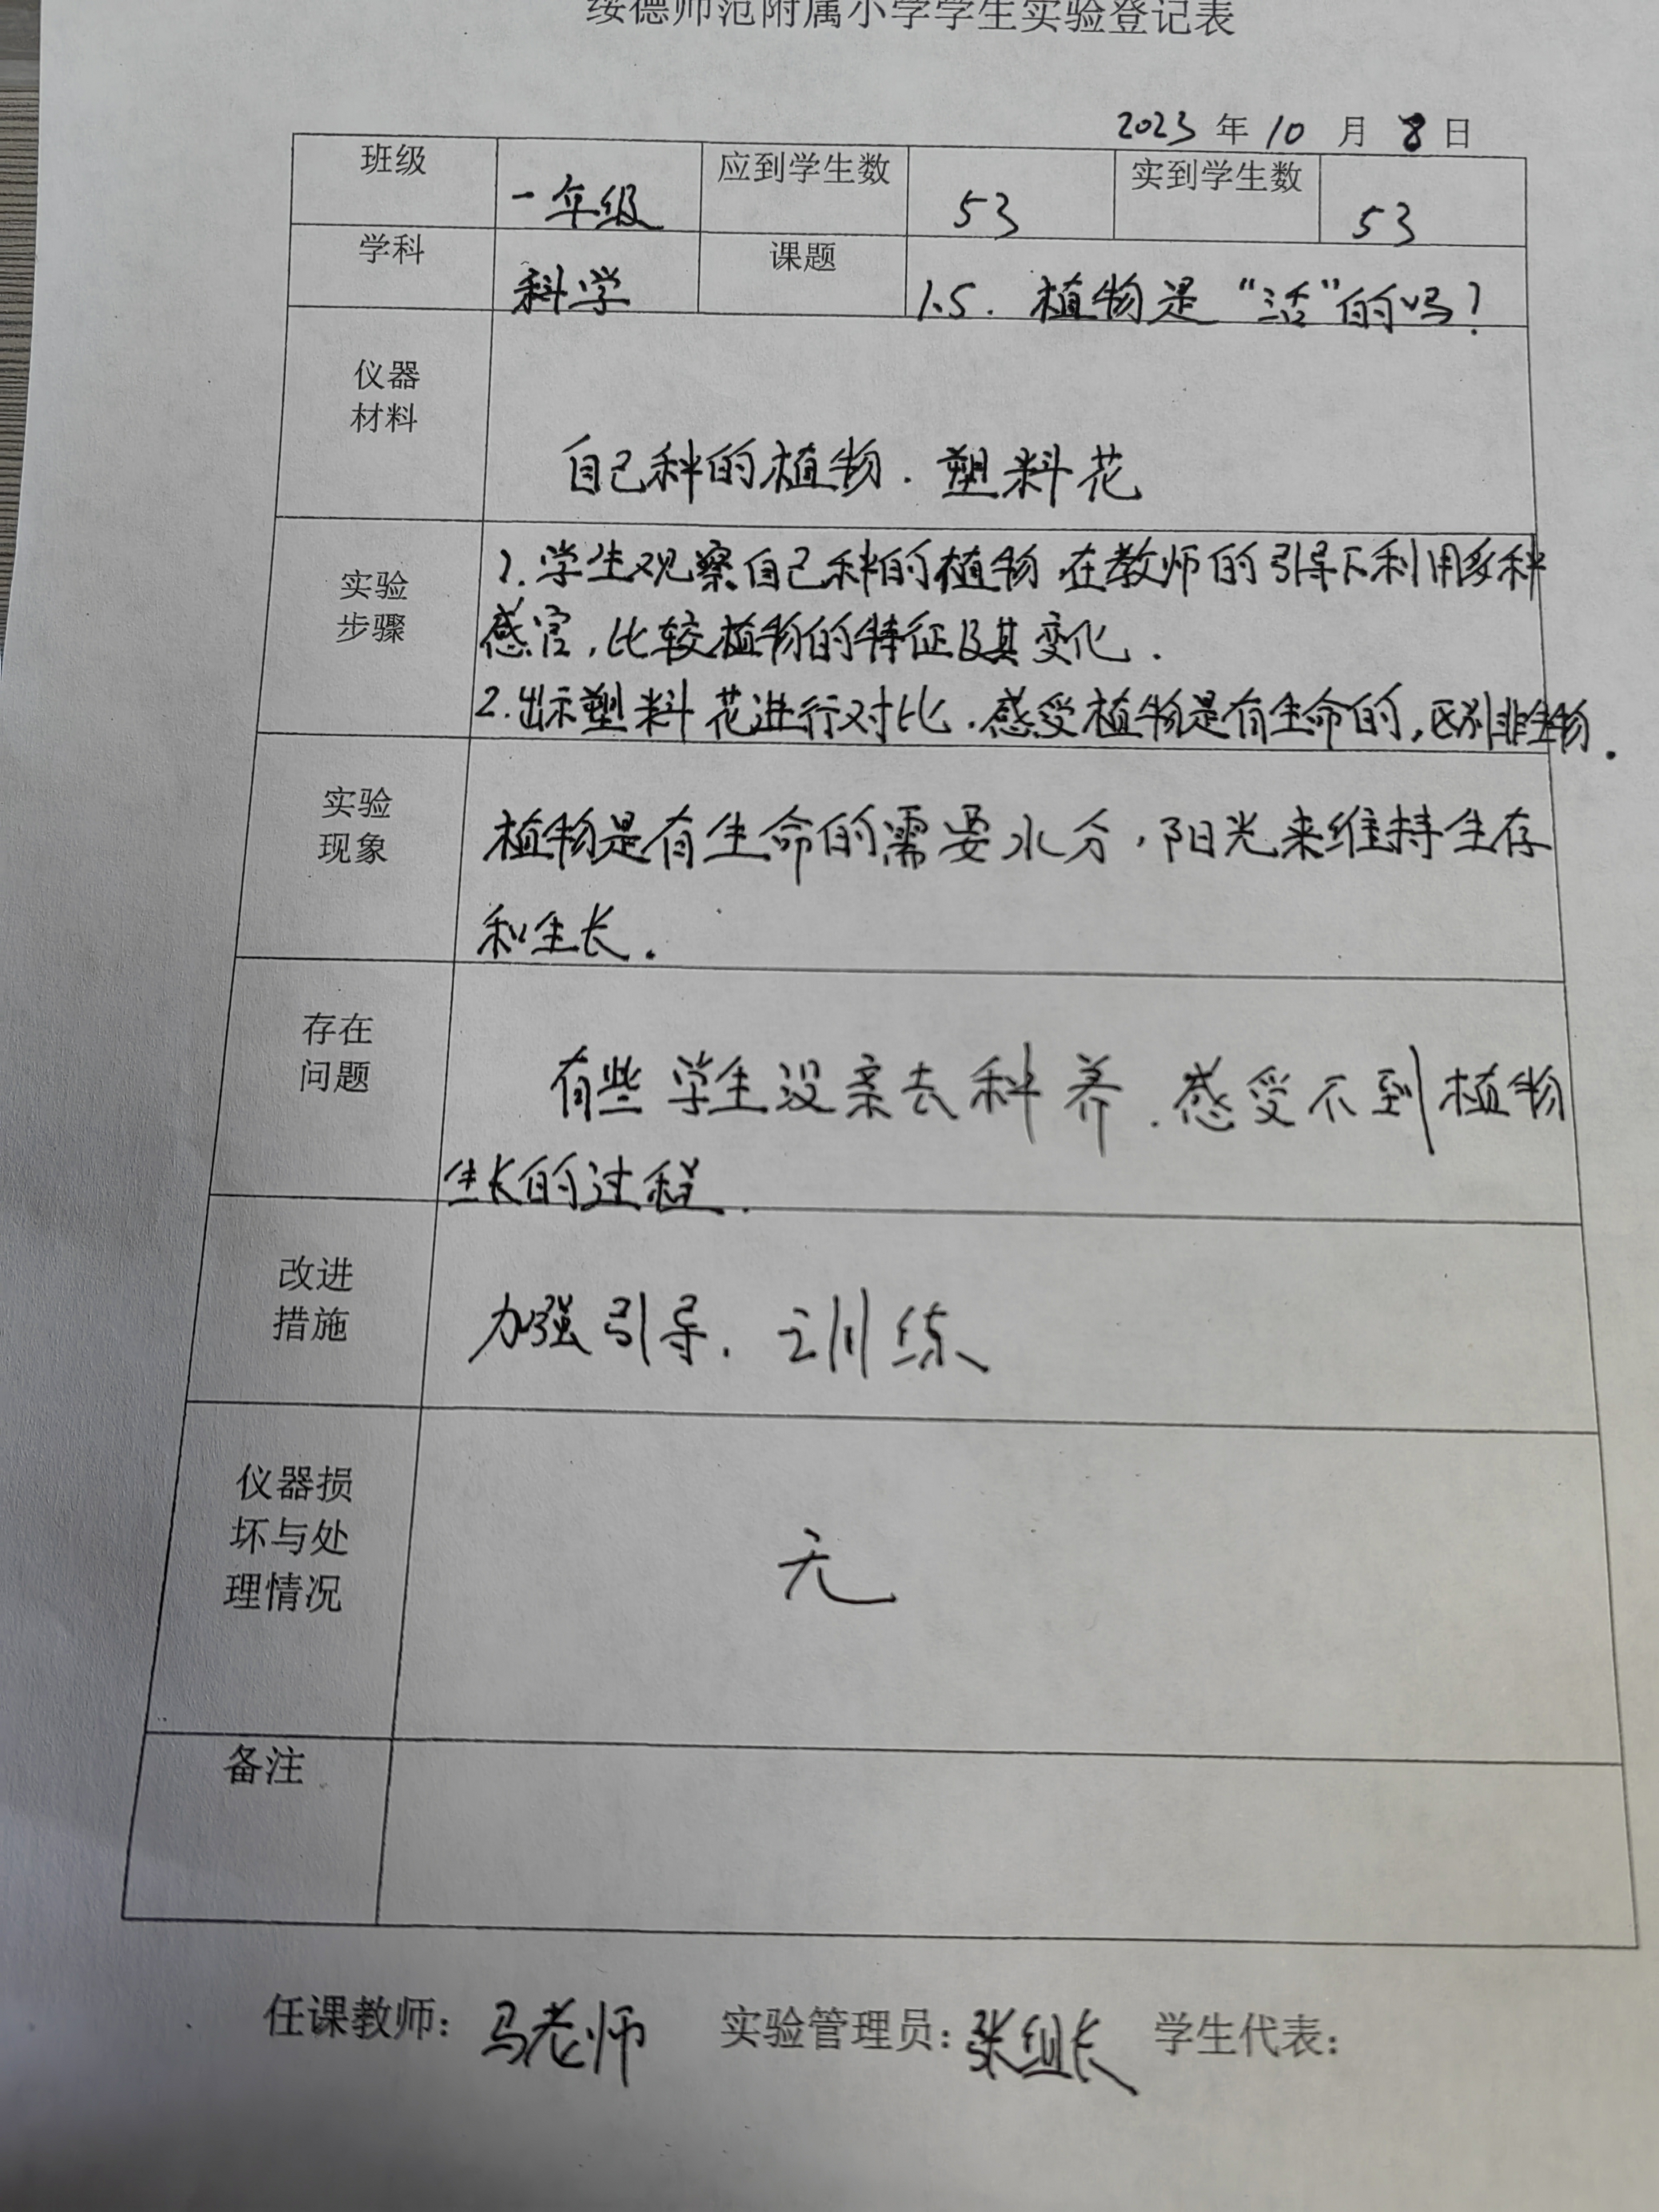 绥德师范附属小学学生实验登记表
2023 年 10 月 8 日
班级 一年级 应到学生数 53 实到学生数 53
学科 科学 课题 1.5. 植物是“活”的吗?
仪器
材料
自己种的植物. 塑料花
实验
步骤
1.学生观察自己种的植物,在教师的引导下利用多种
感官,比较植物的特征及其变化.
2.出示塑料花进行对比.感受植物是有生命的,区别非生物.
实验
现象
植物是有生命的需要水分,阳光来维持生存
和生长.
存在
问题
有些学生没亲去种养.感受不到植物
生长的过程.
改进
措施
加强引导.训练
仪器损
坏与处
理情况
无
备注
任课教师: 马老师 实验管理员: 张组长 学生代表: